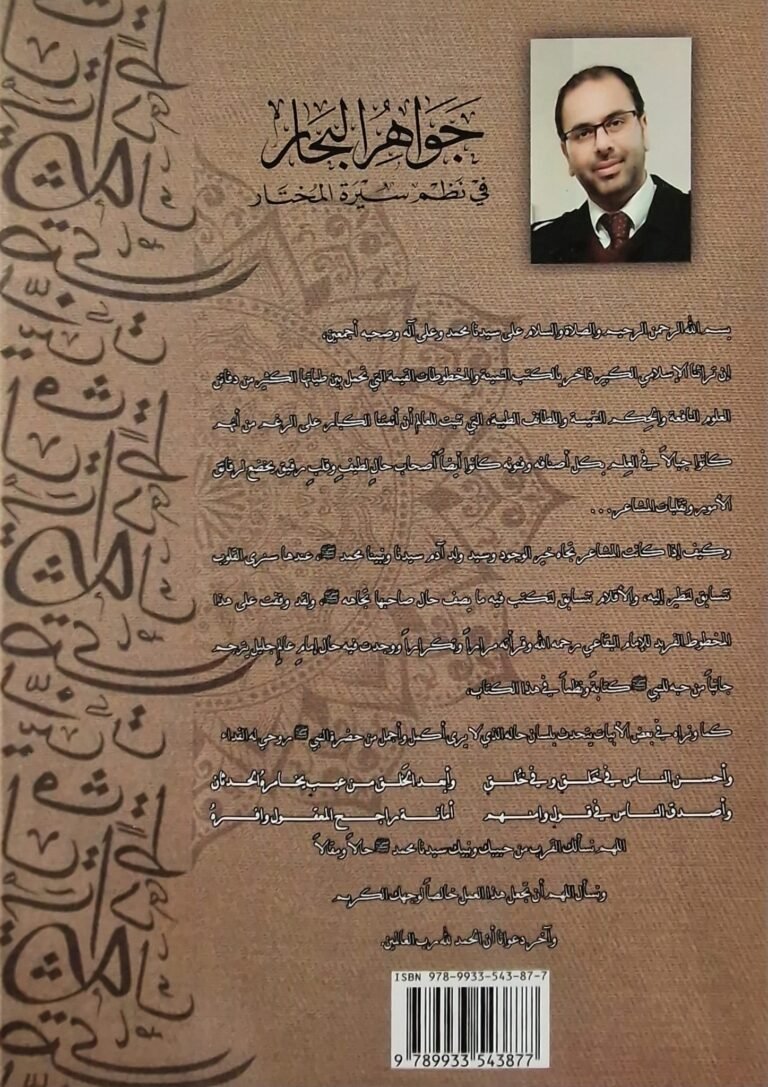 جَوَاهِرُ البِحَار
فِي نَظْمِ سِيْرَةِ المُخْتَار
بسم الله الرحمن الرحيم والصلاة والسلام على سيدنا محمد وعلى آله وصحبه أجمعين،
إن تراثنا الإسلامي الكبير ذاخر بالكتب الثمينة والمخطوطات القيمة التي تحمل بين طياتها الكثير من دفائن
العلوم النافعة والحِكم النفيسة واللطائف الطيبة، التي تثبت للعالم أن أئمتنا الكبار على الرغم من أنهم
كانوا جبالاً في العِلم بكل أصنافه وفنونه كانوا أيضاً أصحاب حالٍ لطيفٍ وقلبٍ رقيق يخضع لرقائق
الأمور وتقلبات المشاعر...
وكيف إذا كانت المشاعر تجاه خير الوجود وسيد ولد آدم سيدنا ونبينا محمد ﷺ، عندها سنرى القلوب
تتسابق لتطير إليه، والأقلام تتسابق لتكتب فيه ما يصف حال صاحبها تجاهه ﷺ، ولقد وقفت على هذا
المخطوط الفريد للإمام البقاعي رحمه الله وقرأته مراراً وتكراراً ووجدت فيه حال إمامٍ عالمٍ جليل يترجم
جانباً من حبه للنبي ﷺ كتابةً ونظماً في هذا الكتاب،
كما ونراه في بعض الأبيات يتحدث بلسان حاله الذي لا يرى أكمل وأجمل من حضرة النبي ﷺ روحي له الفداء
وأحسن الناس في خَلق وفي خُلق وأبعد الخَلق من عيب يخامره الحدثان
وأصدق الناس في قول وأمنهم أمانة راجح المعقول وافرهُ
اللهم نسألك القرب من حبيبك ونبيك سيدنا محمد ﷺ حالاً ومقالاً
ونسأل اللهم أن تجعل هذا العمل خالصاً لوجهك الكريم
وآخر دعوانا أن الحمد لله رب العالمين.
ISBN 978-9933-543-87-7
9 789933 543877